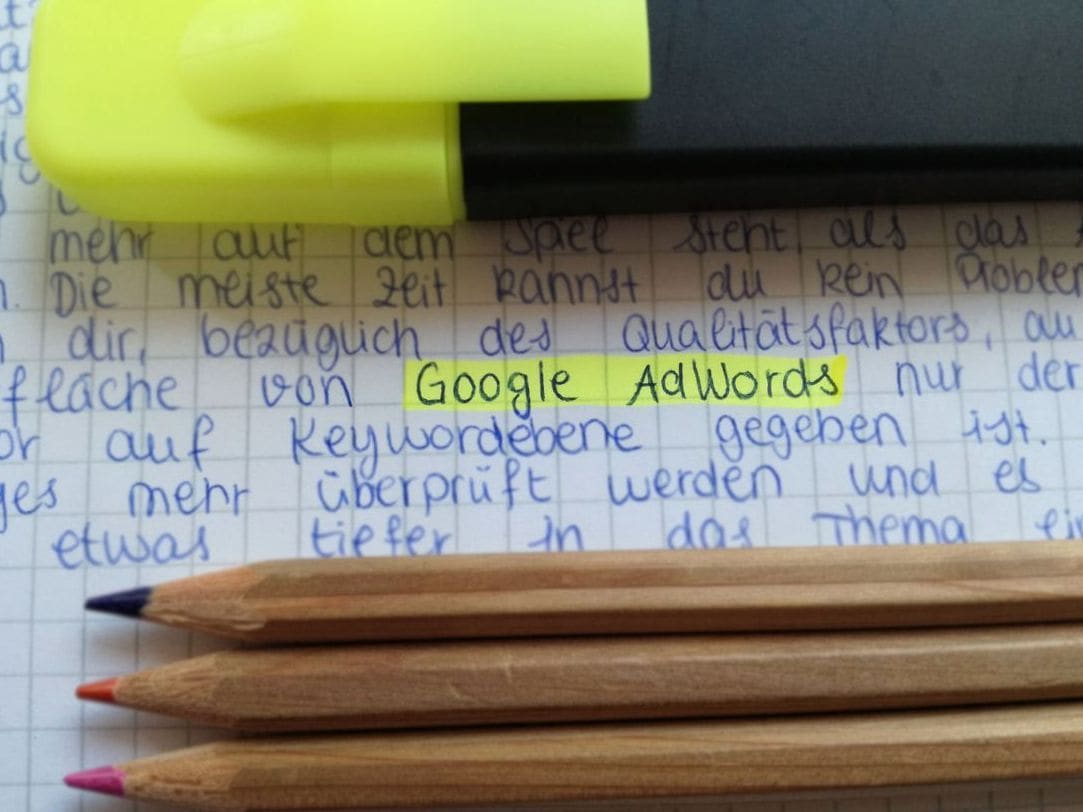 mehr auf dem Spiel steht, als das
Die meiste Zeit kannst du kein Problem
dir, bezüglich des Qualitätsfaktors, au
fläche von Google AdWords nur der
or auf Keywordebene gegeben ist.
ges mehr überprüft werden und es
etwas tiefer in das Thema ein